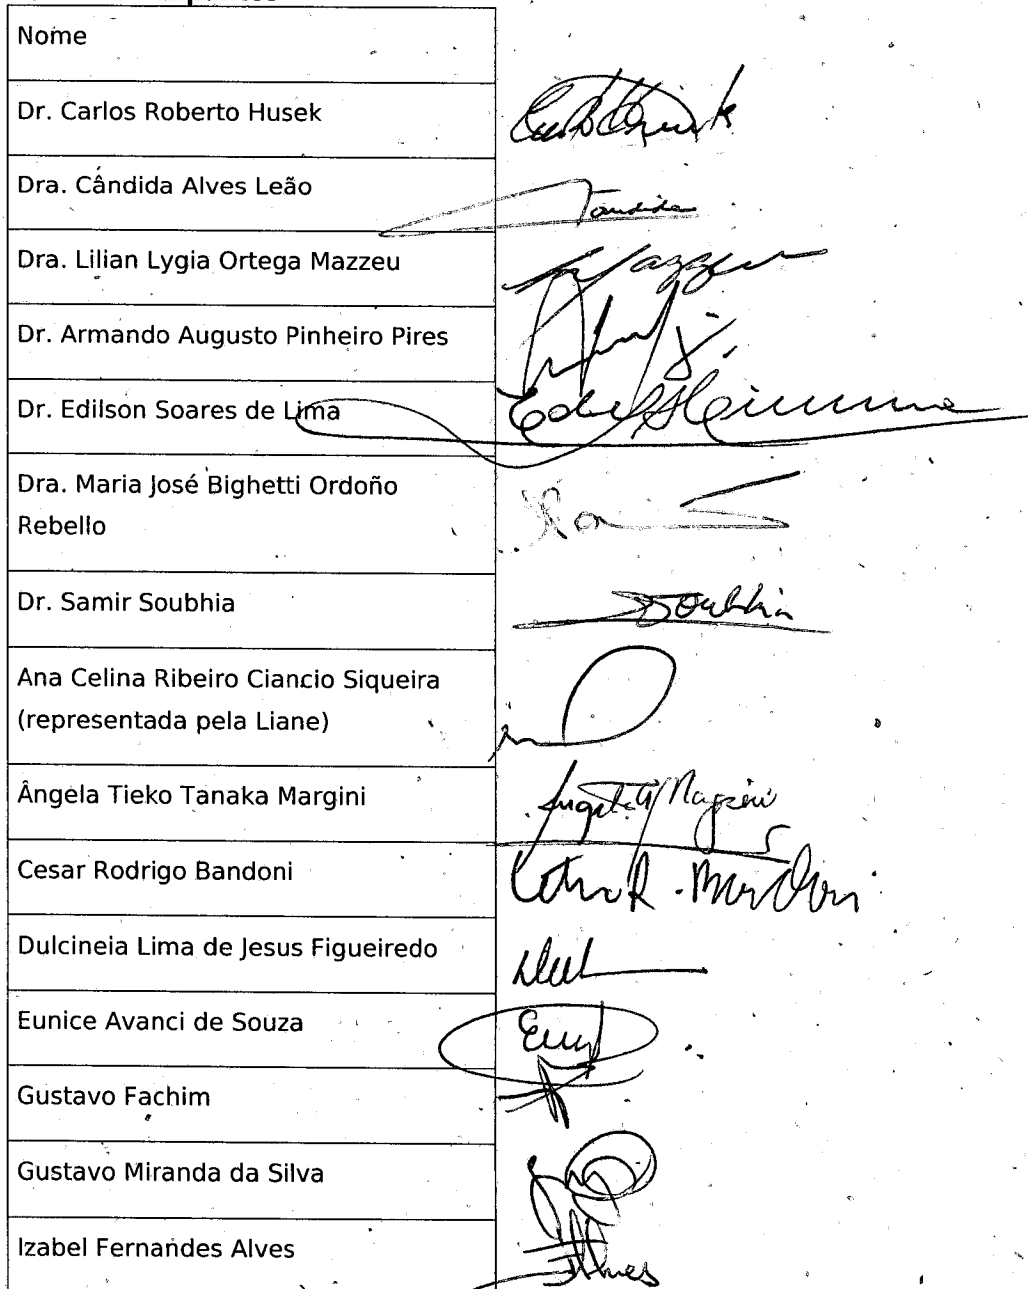 Nome
Dr. Carlos Roberto Husek
Dra. Cândida Alves Leão
Candida
Dra. Lilian Lygia Ortega Mazzeu
Mazzeu
Dr. Armando Augusto Pinheiro Pires
Dr. Edilson Soares de Lima
Dra. Maria José Bighetti Ordoño
Rebello
Dr. Samir Soubhia
Soubhia
Ana Celina Ribeiro Ciancio Siqueira
(representada pela Liane)
Ângela Tieko Tanaka Margini
Cesar Rodrigo Bandoni
Dulcineia Lima de Jesus Figueiredo
Eunice Avanci de Souza
Gustavo Fachim
Gustavo Miranda da Silva
Izabel Fernandes Alves